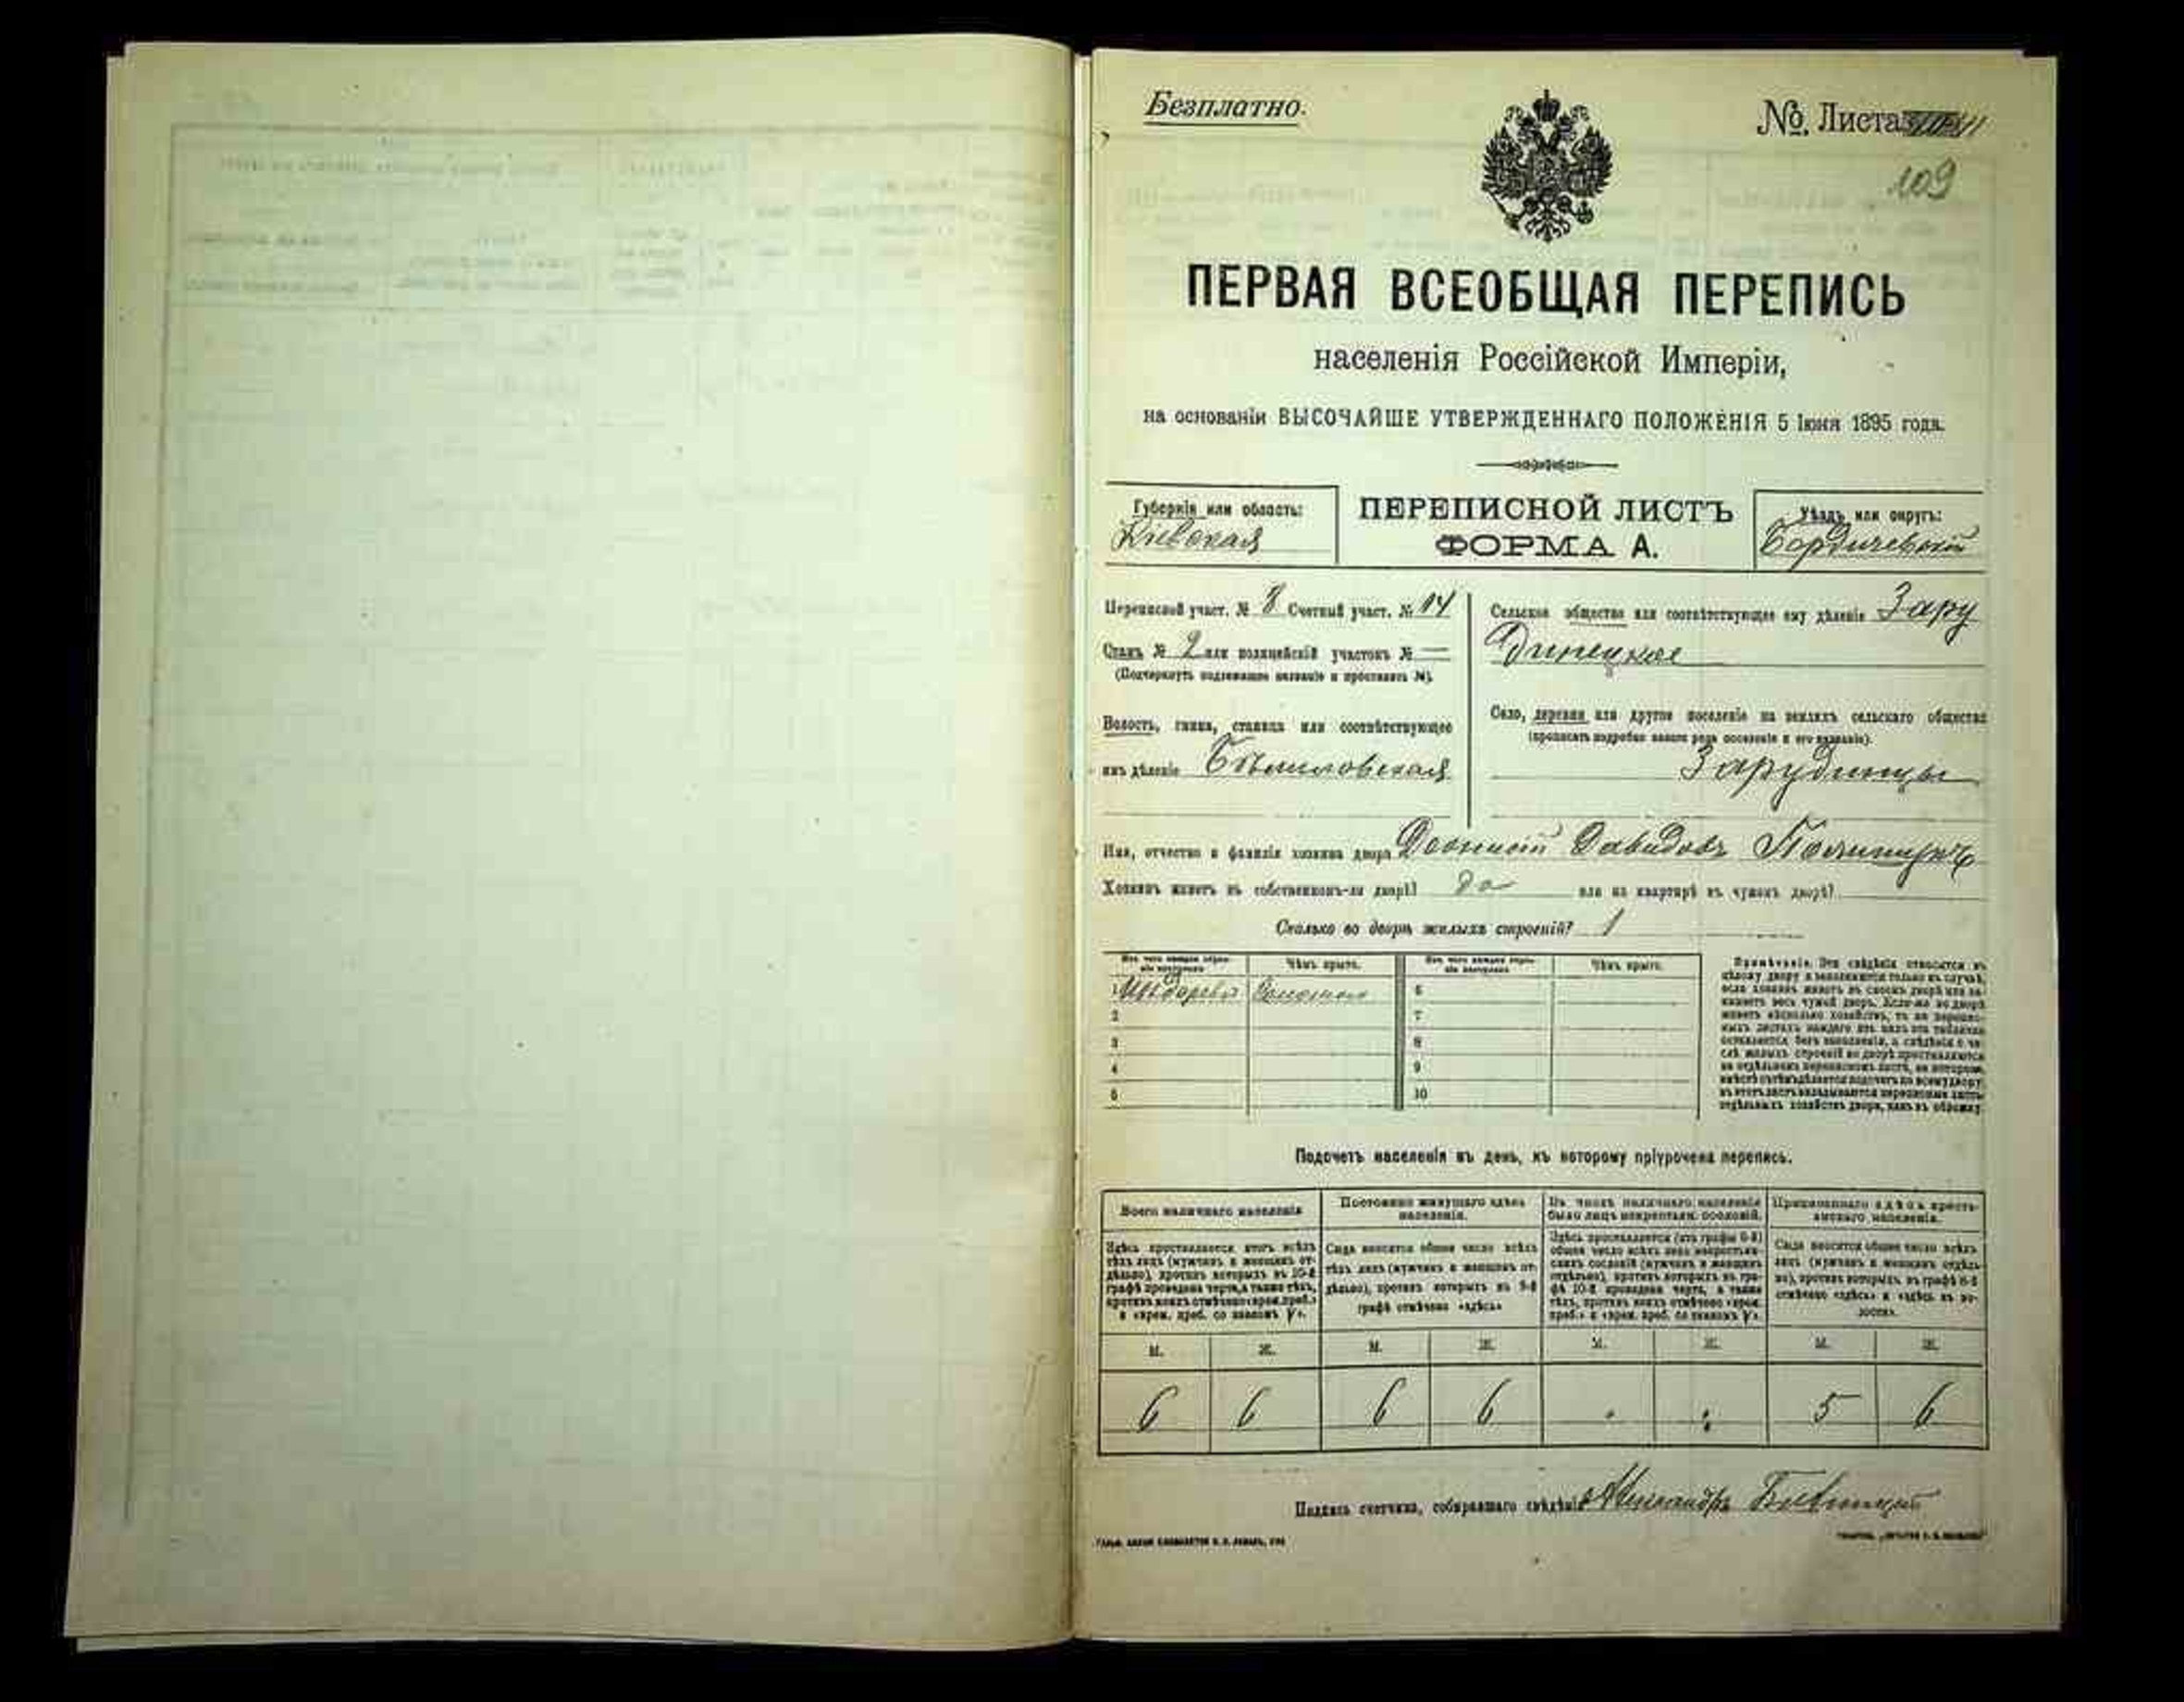 Безплатно.
№ Листа 11
109
ПЕРВАЯ ВСЕОБЩАЯ ПЕРЕПИСЬ
населенія Россійской Имперіи,
на основаніи ВЫСОЧАЙШЕ УТВЕРЖДЕННАГО ПОЛОЖЕНІЯ 5 Іюня 1895 года.
Губернія или область:
Кіевская
ПЕРЕПИСНОЙ ЛИСТЪ
ФОРМА А.
Уѣздъ или округъ:
Бердичевскій
Переписной участ. № 8 Счетный участ. № 14
Станъ № 2 или полицейскій участокъ № —
(Подчеркнуть надлежащее названіе и проставить №).
Волость, гмина, станица или соотвѣтствующее
имъ дѣленіе Бѣлиловская
Сельское общество или соотвѣтствующее ему дѣленіе Зару
динецкое
Село, деревня или другое поселеніе на земляхъ сельскаго общества
(прописать подробно какого рода поселеніе и его названіе).
Зарудинцы
Имя, отчество и фамилія хозяина двора Діонисій Давидовъ
Хозяинъ живетъ въ собственномъ-ли дворѣ? да или на квартирѣ въ чужомъ дворѣ?
Сколько во дворѣ жилыхъ строеній? 1
Изъ чего каждое строеніе построено
Чѣмъ крыто.
Изъ чего каждое строеніе построено
Чѣмъ крыто.
1 Изъ дерева Соломою 6
2 7
3 8
4 9
5 10
Примѣчаніе. Эти свѣдѣнія относятся къ
цѣлому двору и заполняются только въ случаѣ,
если хозяинъ живетъ въ своемъ дворѣ или за-
нимаетъ весь чужой дворъ. Если-же во дворѣ
живетъ нѣсколько хозяйствъ, то на перепис-
ныхъ листахъ каждаго изъ нихъ эта табличка
оставляется безъ заполненія, а свѣдѣнія о чи-
слѣ жилыхъ строеній во дворѣ проставляются
на отдѣльномъ переписномъ листѣ, на которомъ
вмѣстѣ съ тѣмъ дѣлается подсчетъ по всему двору;
въ этотъ листъ вкладываются переписные листы
отдѣльныхъ хозяйствъ двора, какъ въ обложку.
Подсчетъ населенія въ день, къ которому пріурочена перепись.
Всего наличнаго населенія
Постоянно живущаго здѣсь
населенія.
Въ числѣ наличнаго населенія
было лицъ некрестьян. сословій.
Приписаннаго здѣсь кресть-
янскаго населенія.
Здѣсь проставляется итогъ всѣхъ
тѣхъ лицъ (мужчинъ и женщинъ от-
дѣльно), противъ которыхъ въ 10-й
графѣ проведена черта, а также тѣхъ,
противъ коихъ отмѣчено «врем. преб.»
и «врем. преб. со знакомъ V».
Сюда вносится общее число всѣхъ
тѣхъ лицъ (мужчинъ и женщинъ от-
дѣльно), противъ которыхъ въ 9-й
графѣ отмѣчено «здѣсь»
Здѣсь проставляется (изъ графы 6-й)
общее число всѣхъ лицъ некрестьян-
скихъ сословій (мужчинъ и женщинъ
отдѣльно), противъ которыхъ въ гра-
фѣ 10-й проведена черта, а также
тѣхъ, противъ коихъ отмѣчено «врем.
преб.» и «врем. преб. со знакомъ V».
Сюда вносится общее число всѣхъ
лицъ (мужчинъ и женщинъ отдѣль-
но), противъ которыхъ въ графѣ 8-й
отмѣчено «здѣсь» и «здѣсь въ во-
лости».
М. Ж. М. Ж. М. Ж. М. Ж.
6 6 6 6 5 6
Подпись счетчика, собиравшаго свѣдѣнія Александръ